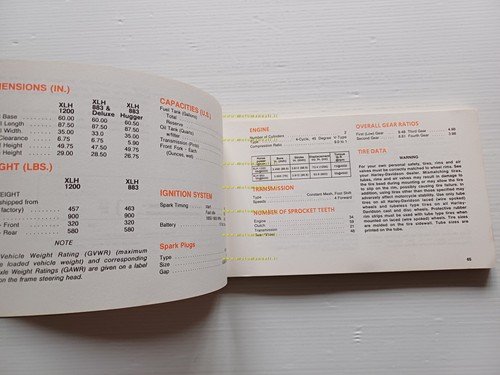 MENSIONS (IN.)
XLH 1200
XLH 883 & Deluxe
XLH 883 Hugger
l Base 60.00 60.00 60.00
l Length 87.50 87.50 87.50
l Width 35.00 33.0 35.00
Clearance 6.75 6.75 5.90
l Height 49.75 47.50 47.50
Height 29.00 28.50 26.75
GHT (LBS.)
XLH 1200
XLH 883
EIGHT
shipped from
factory) 457 463
900 900
- Front 320 320
Rear 580 580
NOTE
Vehicle Weight Rating (GVWR) (maximum
e loaded vehicle weight) and corresponding
xle Weight Ratings (GAWR) are given on a label
on the frame steering head.
CAPACITIES (U.S.)
Fuel Tank (Gallons)
Total
Reserve
Oil Tank (Quarts)
w/filter
Transmission (Pints)
Front Fork - Each
(Ounces, wet)
IGNITION SYSTEM
Spark Timing
Battery
Spark Plugs
Type
Size
Gap
ENGINE
Number of Cylinders 2
Type 4-Cycle, 45 Degree V-Type
Compression Ratio 9.0 to 1
TRANSMISSION
Type Constant Mesh, Foot Shift
Speeds 4 Forward
NUMBER OF SPROCKET TEETH
Engine 34
Clutch
Transmission 21
Rear Wheel 48
OVERALL GEAR RATIOS
First (Low) Gear Third Gear 4.90
Second Gear Fourth Gear
TIRE DATA
WARNING
For your own personal safety, tires, rims and air
valves must be correctly matched to wheel rims. See
your Harley-Davidson dealer. Mismatching tires,
tubes, rims and air valves may result in damage to
the tire bead during mounting or may allow the tire
to slip on the rim, possibly causing tire failure. In
addition, using tires other than those specified may
adversely affect motorcycle stability. Use only tube
type tires on laced (wire spoked)
wheels and tubeless type tires on all Harley-
Davidson cast and disc wheels. Protective rubber
rim strips must be used with tube type tires when
mounted on laced (wire spoked) wheels. Tire sizes
are molded on the tire sidewall. Tube sizes are
printed on the tube.
65